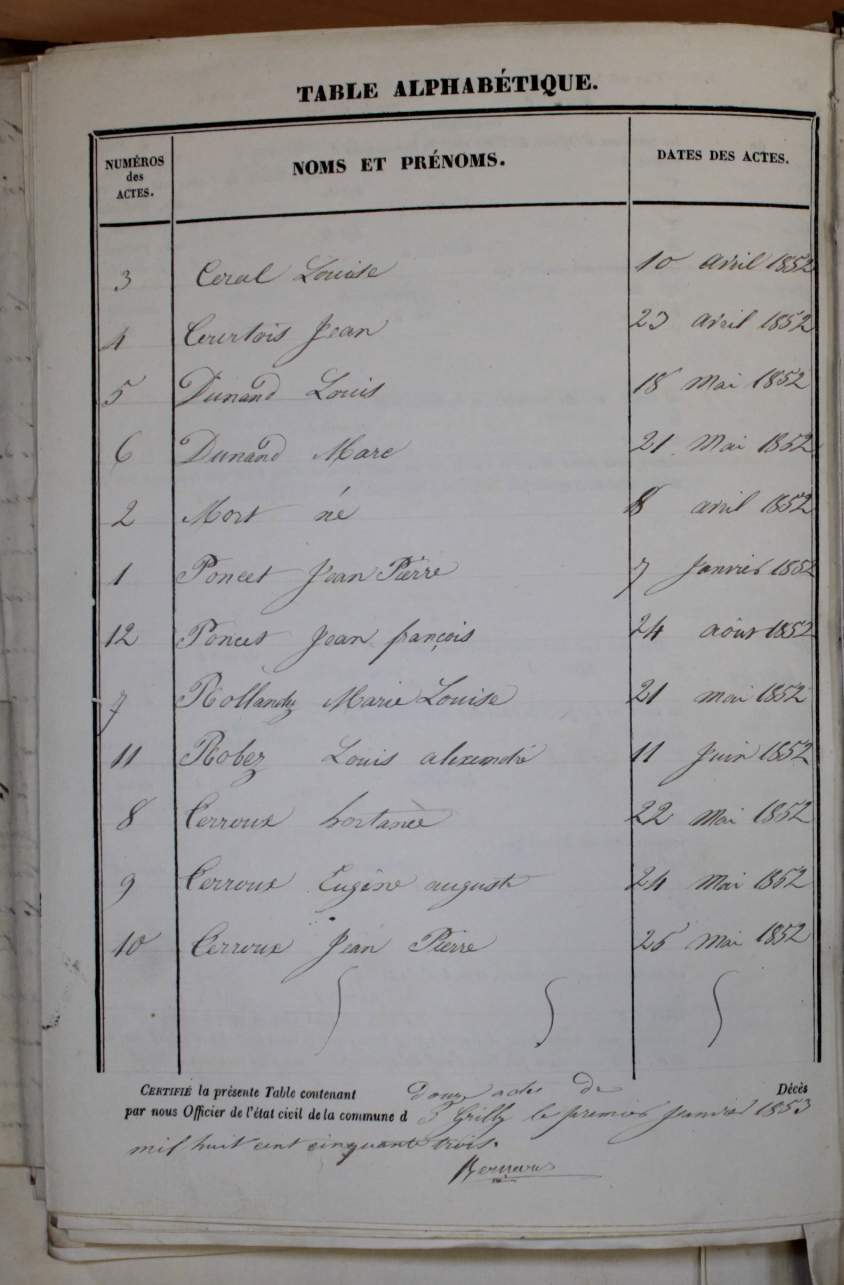 TABLE ALPHABÉTIQUE.
NUMÉROS des ACTES. NOMS ET PRÉNOMS. DATES DES ACTES.
3 Louise 10 avril 1852
4 Courtois Jean 23 avril 1852
5 Dunand Louis 18 Mai 1852
6 Dunand Marc 21 Mai 1852
2 Mort né 8 avril 1852
1 Poncet Jean Pierre 7 Janvier 1852
12 Poncet Jean françois 24 août 1852
7 Marie Louise 21 mai 1852
11 Robez Louis alexandre 11 Juin 1852
8 hortance 22 Mai 1852
9 Eugène auguste 24 Mai 1852
10 Jean Pierre 25 Mai 1852
CERTIFIÉ la présente Table contenant Douze actes de Décès
par nous Officier de l'état civil de la commune d Grilly le premier Janvier 1853
mil huit cent cinquante trois.